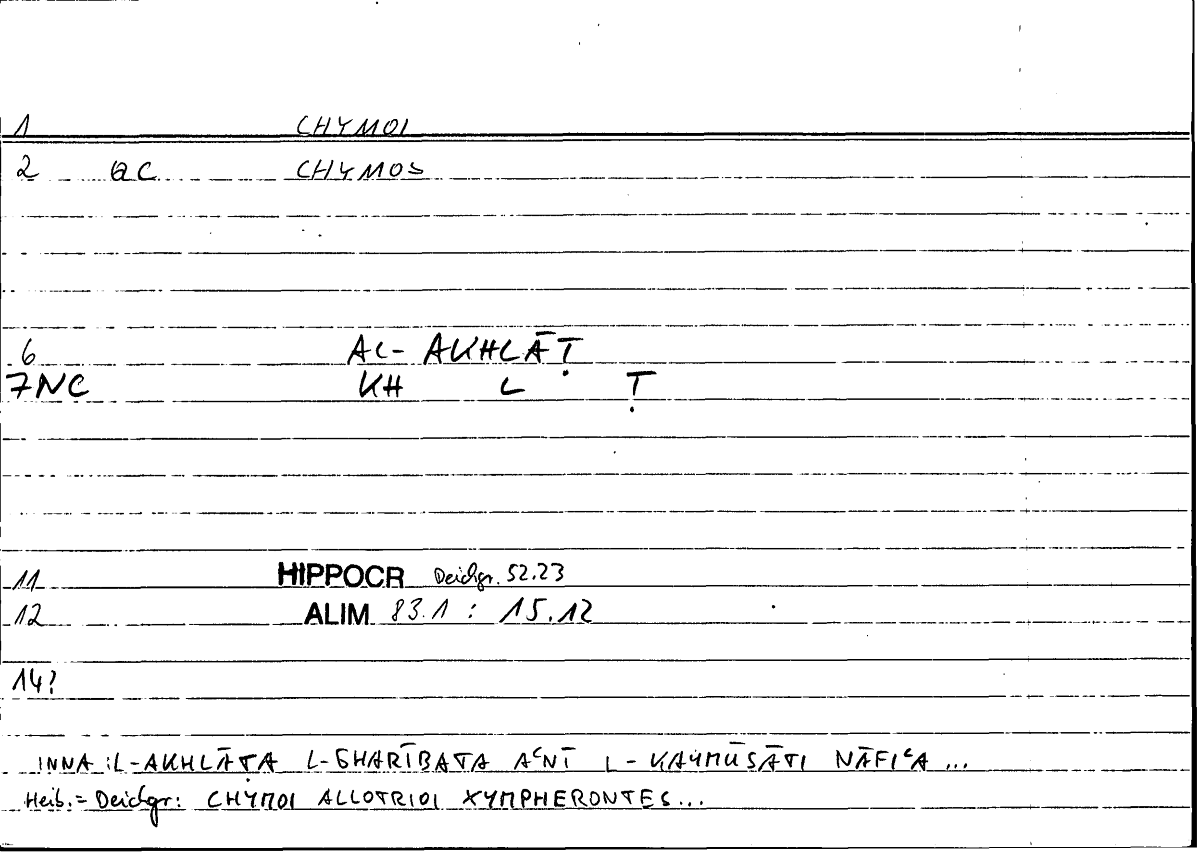 1 CHYMOI
2 QC CHYMOS
6 AL- AKHLĀṬ
7NC KH L Ṭ
11 HIPPOCR Deichgr. 52.23
12 ALIM 83.1 : 15.12
14?
INNA :L-AKHLĀṬA L-GHARĪBATA AʿNĪ L-KAYMŪSĀTI NĀFIʿA ...
Heib. = Deichgr: CHYMOI ALLOTRIOI XYMPHERONTES...